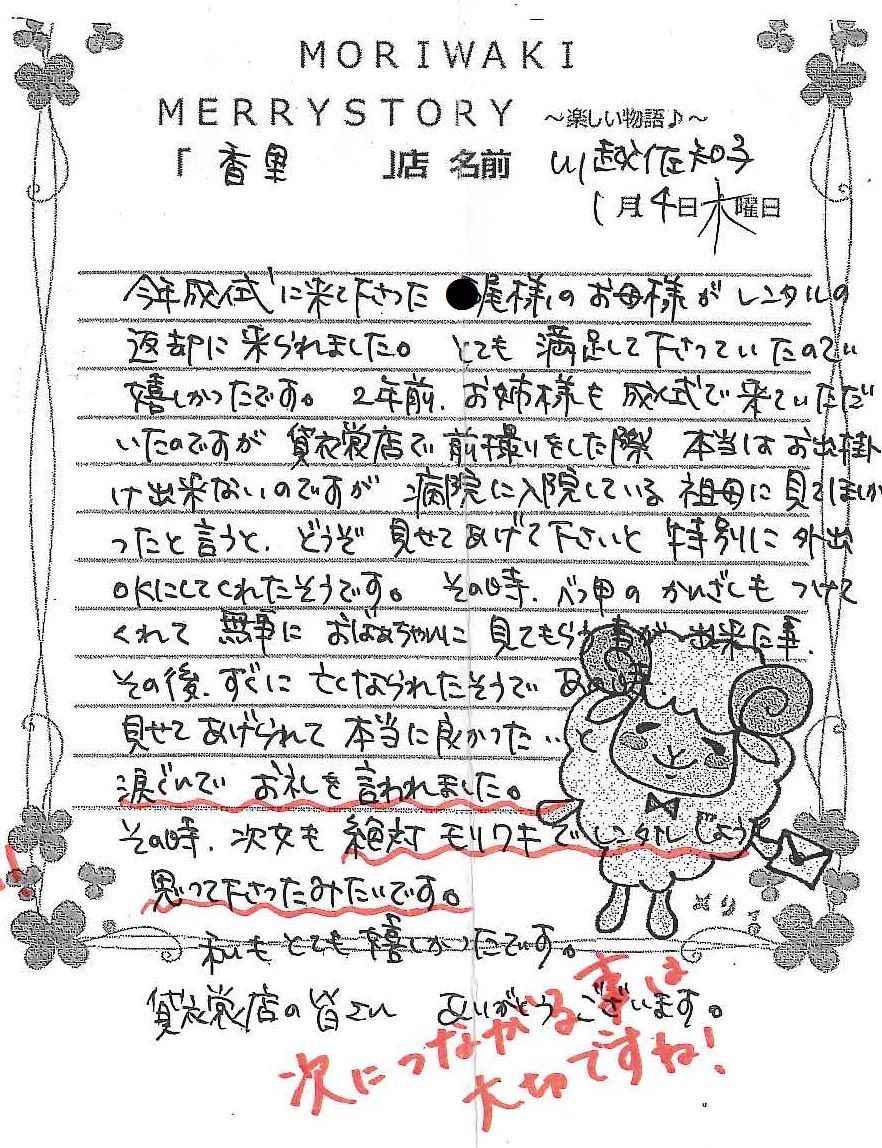 MORIWAKI
MERRYSTORY ～楽しい物語♪～
「 香里 」店 名前 川越佐知子
1月4日木曜日
今年成人式に来て下さった 尾様のお母様がレンタルの
返却に来られました。とても満足して下さっていたので
嬉しかったです。2年前、お姉様も成人式で来ていただ
いたのですが貸衣裳店で前撮りをした際 本当はお出掛
け出来ないのですが 病院に入院している祖母に見てほしか
ったと言うと、どうぞ見せてあげて下さいと特別に外出
OKにしてくれたそうです。その時、べっ甲のかんざしもつけて
くれて 無事に おばあちゃんに 見てもらう事が出来た事、
その後、すぐに 亡くなられたそうで あの時
見せてあげられて 本当に良かった…と
涙ぐんで お礼を言われました。
その時、次女も 絶対 モリワキでレンタルしようと
思って下さったみたいです。
私もとても嬉しかったです。
貸衣裳店の皆さん ありがとうございます。
次につながる事は
大切ですね!
メリー